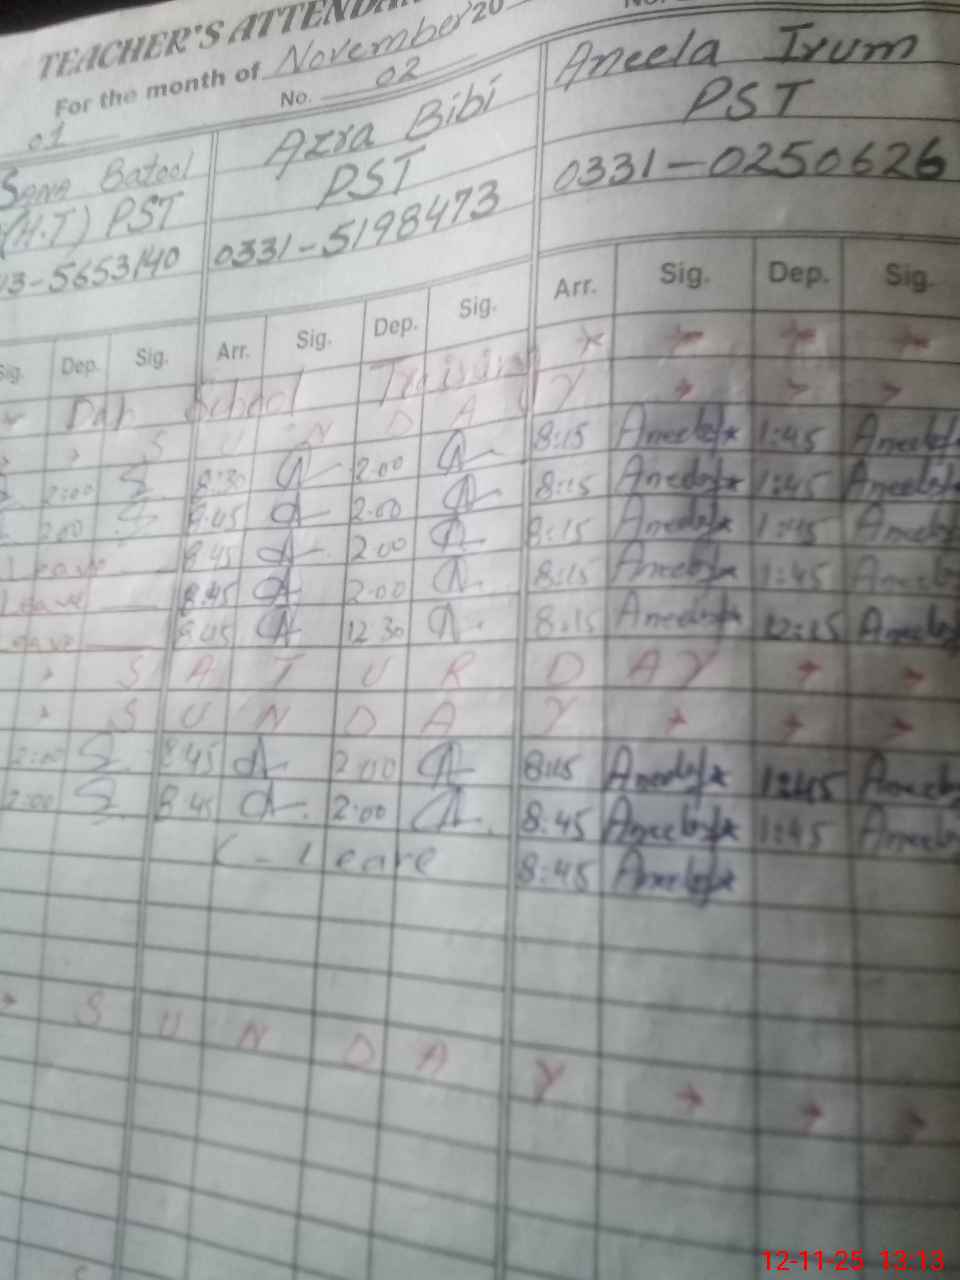 TEACHER'S ATTENDA
For the month of November 20
01 No. 02
Sana Batool Azra Bibi Aneela Irum
(H.T) PST PST PST
13-5653140 0331-5198473 0331-0250626
Sig. Dep. Sig. Arr. Sig. Dep. Sig. Arr. Sig. Dep. Sig.
School
S U N D A Y
2:00 8:30 2:00 8:15 1:45
2:00 8:45 2:00 8:15 1:45
Leave 8:45 2:00 8:15 1:45
Leave 8:45 2:00 8:15 1:45
Leave 8:45 12:30 8:15 12:15
S A T U R D A Y
S U N D A Y
2:00 8:45 2:00 8:15 1:45
2:00 8:45 2:00 8:45 1:45
C-Leave 8:45
S U N D A Y
12-11-25 13:13